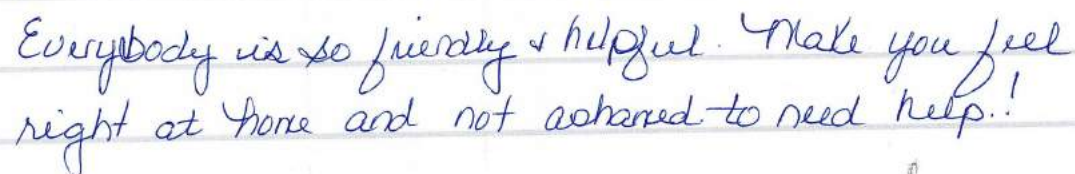 Everybody is so friendly & helpful. Make you feel
right at home and not ashamed to need help.!